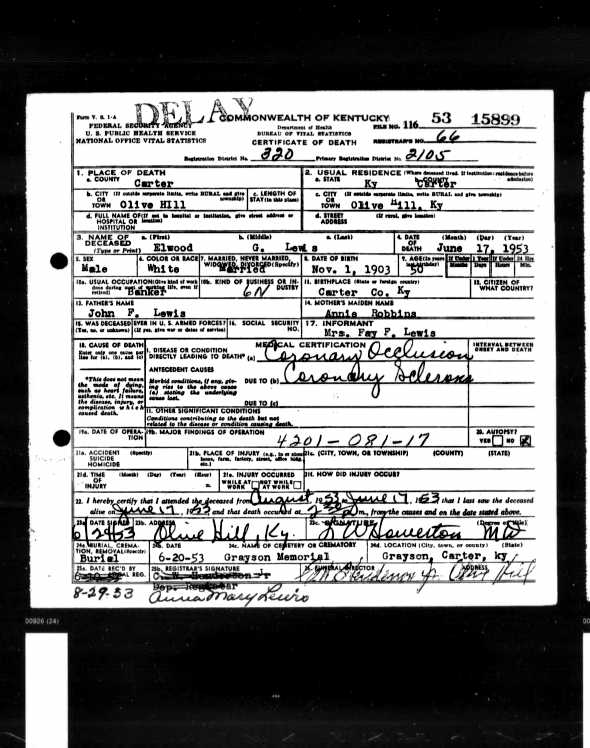 Form V. S. 1-A
DELAY
COMMONWEALTH OF KENTUCKY
FEDERAL SECURITY AGENCY
U. S. PUBLIC HEALTH SERVICE
NATIONAL OFFICE VITAL STATISTICS
Department of Health
BUREAU OF VITAL STATISTICS
CERTIFICATE OF DEATH
FILE NO. 116 53 15899
REGISTRAR'S NO. 66
Registration District No. 320 Primary Registration District No. 2105
1. PLACE OF DEATH
a. COUNTY
Carter
2. USUAL RESIDENCE (Where deceased lived. If institution: residence before admission)
a. STATE b. COUNTY
Ky Carter
b. CITY (If outside corporate limits, write RURAL and give township)
OR
TOWN Olive Hill
c. LENGTH OF STAY (in this place)
c. CITY (If outside corporate limits, write RURAL and give township)
OR
TOWN Olive Hill, Ky
d. FULL NAME OF (If not in hospital or institution, give street address or location)
HOSPITAL OR
INSTITUTION
d. STREET (If rural, give location)
ADDRESS
3. NAME OF DECEASED (Type or Print)
a. (First) b. (Middle) c. (Last)
Elwood G. Lewis
4. DATE OF DEATH (Month) (Day) (Year)
June 17, 1953
5. SEX
Male
6. COLOR OR RACE
White
7. MARRIED, NEVER MARRIED, WIDOWED, DIVORCED (Specify)
Married
8. DATE OF BIRTH
Nov. 1, 1903
9. AGE (In years last birthday)
50
If Under 1 Year If Under 24 Hrs
Months Days Hours Min.
10a. USUAL OCCUPATION (Give kind of work done during most of working life, even if retired)
Banker
10b. KIND OF BUSINESS OR INDUSTRY
11. BIRTHPLACE (State or foreign country)
Carter Co. Ky
12. CITIZEN OF WHAT COUNTRY?
13. FATHER'S NAME
John F. Lewis
14. MOTHER'S MAIDEN NAME
Annie Robbins
15. WAS DECEASED EVER IN U. S. ARMED FORCES?
(Yes, no, or unknown) (If yes, give war or dates of service)
16. SOCIAL SECURITY NO.
17. INFORMANT
Mrs. Fay F. Lewis
18. CAUSE OF DEATH
Enter only one cause per line for (a), (b), and (c)
MEDICAL CERTIFICATION
INTERVAL BETWEEN ONSET AND DEATH
I. DISEASE OR CONDITION
DIRECTLY LEADING TO DEATH* (a) Coronary Occlusion
*This does not mean the mode of dying, such as heart failure, asthenia, etc. It means the disease, injury, or complication which caused death.
ANTECEDENT CAUSES
Morbid conditions, if any, giving rise to the above cause (a) stating the underlying cause last.
DUE TO (b) Coronary Sclerosis
DUE TO (c)
II. OTHER SIGNIFICANT CONDITIONS
Conditions contributing to the death but not related to the disease or condition causing death.
19a. DATE OF OPERATION
19b. MAJOR FINDINGS OF OPERATION
4201-081-17
20. AUTOPSY?
YES NO
21a. ACCIDENT (Specify)
SUICIDE
HOMICIDE
21b. PLACE OF INJURY (e.g., in or about home, farm, factory, street, office bldg., etc.)
21c. (CITY, TOWN, OR TOWNSHIP) (COUNTY) (STATE)
21d. TIME OF INJURY (Month) (Day) (Year) (Hour)
m.
21e. INJURY OCCURRED
WHILE AT WORK NOT WHILE AT WORK
21f. HOW DID INJURY OCCUR?
22. I hereby certify that I attended the deceased from August, to June 17, 1953 that I last saw the deceased
alive on June 17, 1953 and that death occurred at m., from the causes and on the date stated above.
23a. DATE SIGNED
23b. ADDRESS
Olive Hill, Ky.
23c. SIGNATURE (Degree or title)
Howerton MD
24a. BURIAL, CREMATION, REMOVAL (Specify)
Burial
24b. DATE
6-20-53
24c. NAME OF CEMETERY OR CREMATORY
Grayson Memorial
24d. LOCATION (City, town, or county) (State)
Grayson, Carter, ky.
25a. DATE REC'D BY LOCAL REG.
8-29-53
25b. REGISTRAR'S SIGNATURE
Dep. Registrar
Anna Mary Lewis
26. FUNERAL DIRECTOR ADDRESS
Henderson Jr Olive Hill
00926 (24)